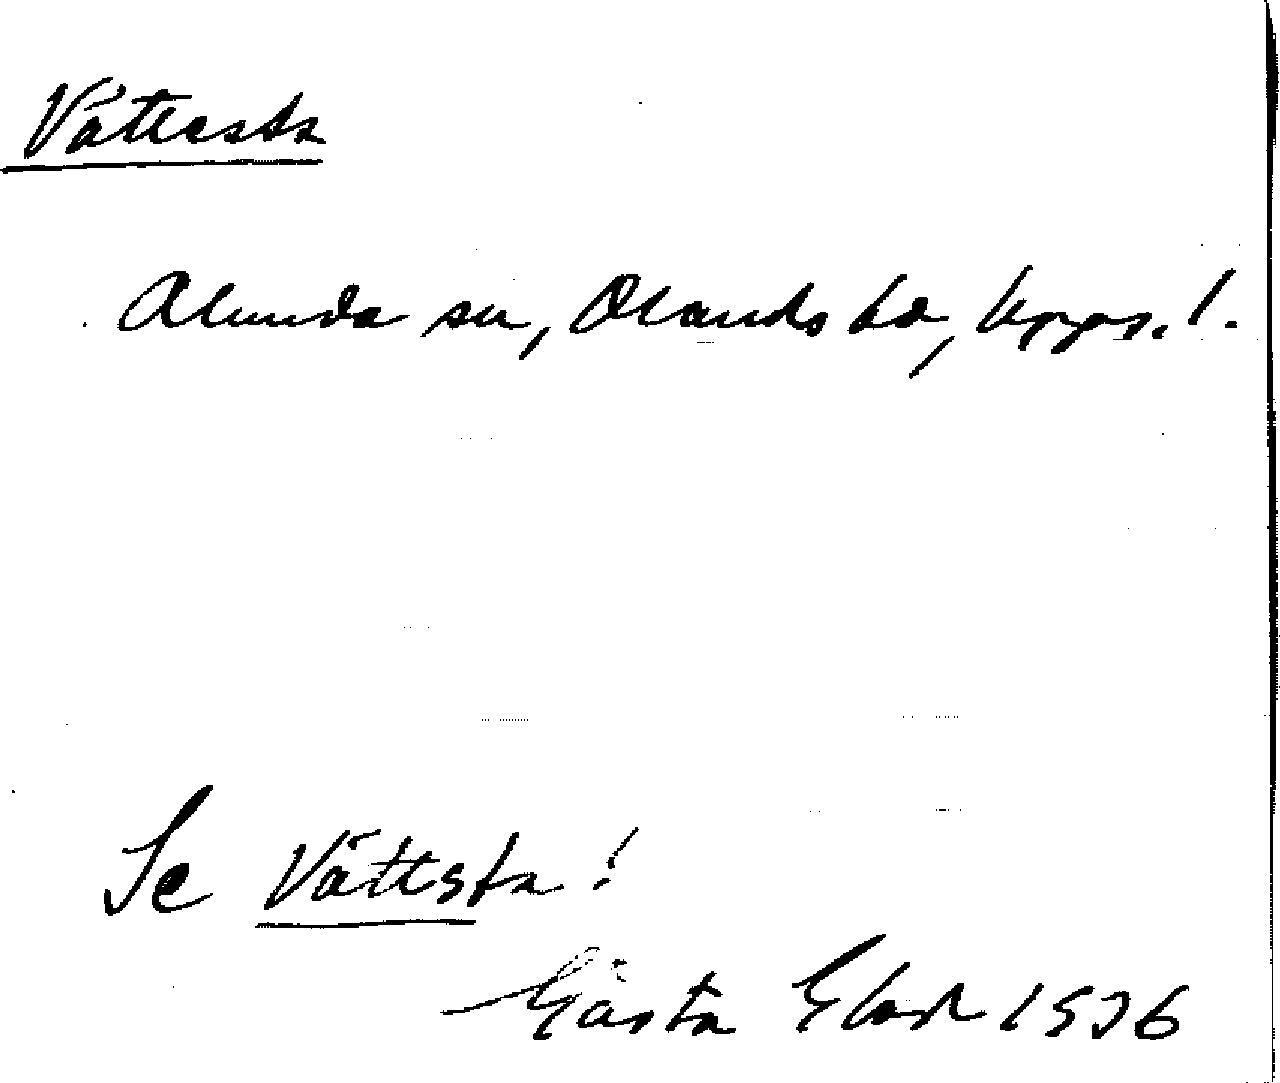 Vättesta
Alunda sn, Olands hd, Upps. l.
Se Vättsta!
Gösta Eloh 1936